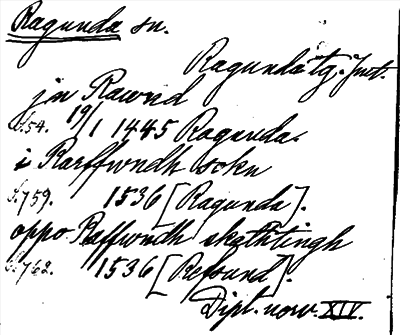 Ragunda sn.
Ragunda tg. Jmt.
jn Rawnd
s.54. 19/1 1445 Ragunda.
i Raffwndh sokn
s.759. 1536 [Ragunda].
oppo Raffwndh skathtingh
s.762. 1536 [Refsund].
Dipl. norv. XIV.